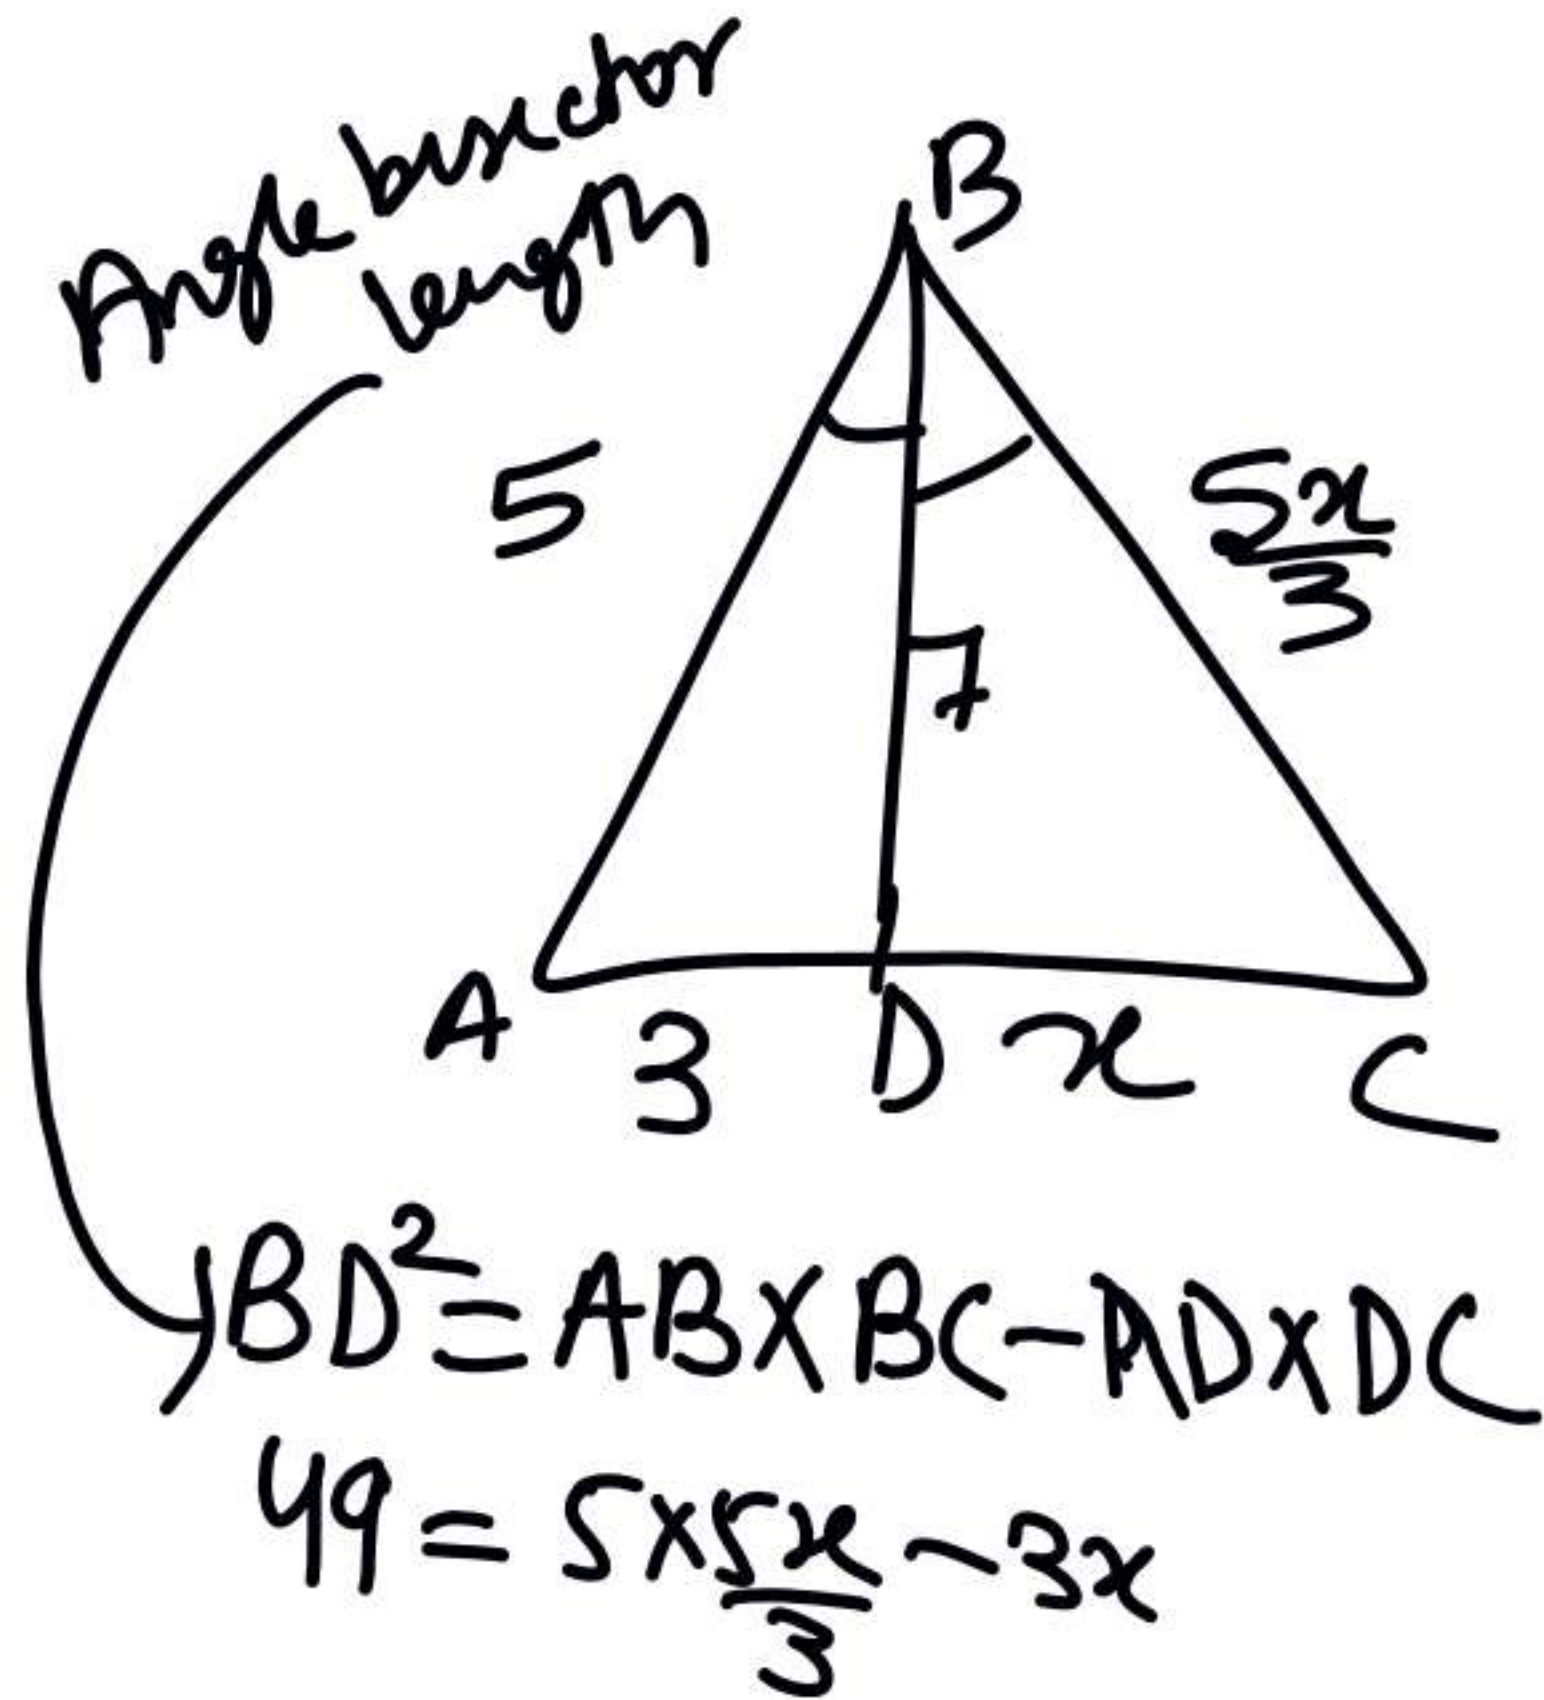 Angle bisector
length
B
5
5x/3
7
A
3
D
x
C
BD²=AB×BC-AD×DC
49=5×5x/3-3x